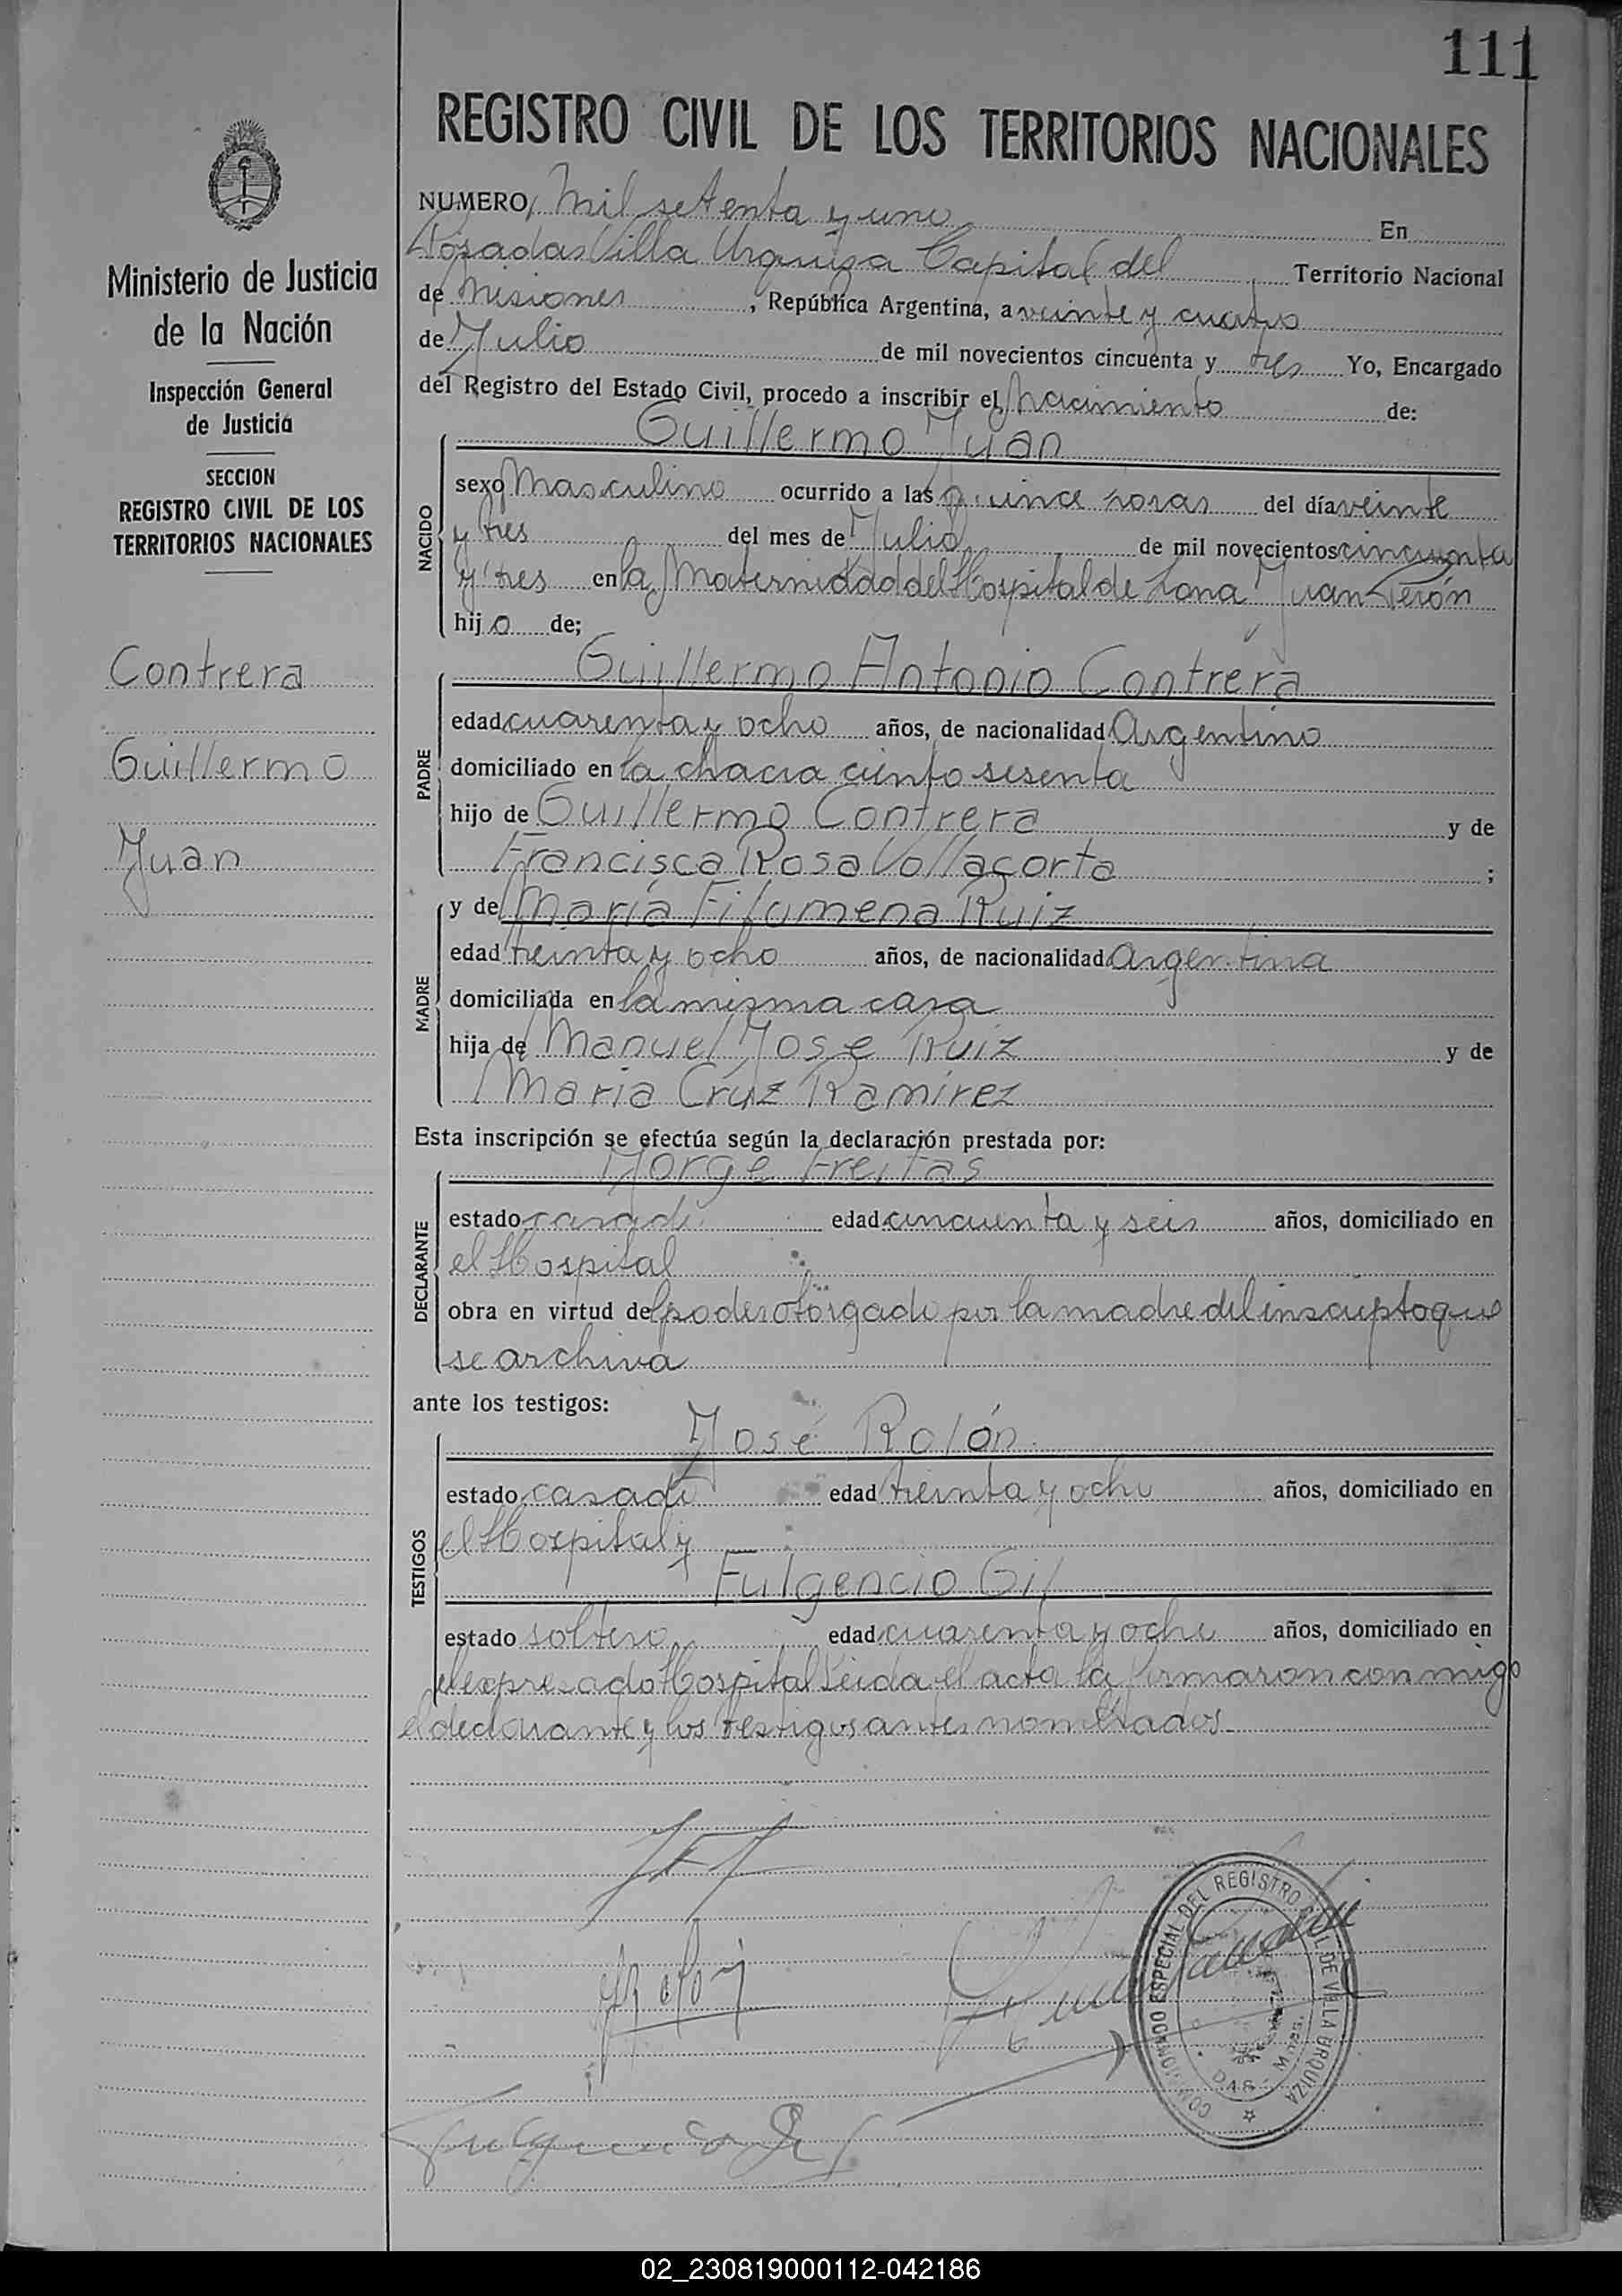 111
REGISTRO CIVIL DE LOS TERRITORIOS NACIONALES
Ministerio de Justicia
de la Nación
Inspección General
de Justicia
SECCION
REGISTRO CIVIL DE LOS
TERRITORIOS NACIONALES
Contrera
Guillermo
Juan
NUMERO Mil setenta y uno En
Posadas Villa Urquiza Capital del Territorio Nacional
de Misiones, República Argentina, a veinte y cuatro
de Julio de mil novecientos cincuenta y tres Yo, Encargado
del Registro del Estado Civil, procedo a inscribir el Nacimiento de:
Guillermo Juan
NACIDO
sexo Masculino ocurrido a las quince horas del día veinte
y tres del mes de Julio de mil novecientos cincuenta
y tres en la Maternidad del Hospital de Zona Juan Perón
hijo de;
Guillermo Antonio Contrera
PADRE
edad cuarenta y ocho años, de nacionalidad Argentino
domiciliado en la chacra ciento sesenta
hijo de Guillermo Contrera y de
Francisca Rosa Vollacorta ;
MADRE
y de Maria Filomena Ruiz
edad treinta y ocho años, de nacionalidad Argentina
domiciliada en la misma casa
hija de Manuel José Ruiz y de
Maria Cruz Ramirez
Esta inscripción se efectúa según la declaración prestada por:
Jorge Freitas
DECLARANTE
estado casado edad cincuenta y seis años, domiciliado en
el Hospital
obra en virtud del poder otorgado por la madre del inscripto que
se archiva
ante los testigos:
José Rolón
TESTIGOS
estado casado edad treinta y ocho años, domiciliado en
el Hospital y
Fulgencio Gil
estado soltero edad cuarenta y ocho años, domiciliado en
el expresado Hospital Leida el acta la firmaron conmigo
el declarante y los testigos antes nombrados
ESPECIAL DEL REGISTRO DE VILLA URQUIZA
02_230819000112-042186